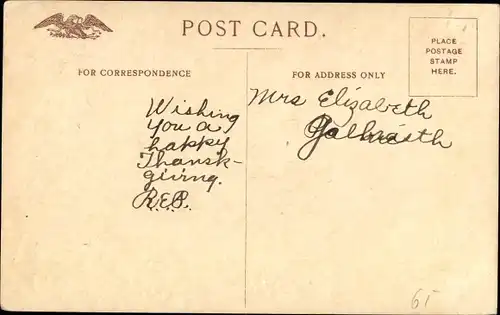 POST CARD.
PLACE
POSTAGE
STAMP
HERE.
FOR CORRESPONDENCE
FOR ADDRESS ONLY
Wishing
you a
happy
Thansk-
giving.
R.E.P.
Mrs Elizabeth
Galbraith
65